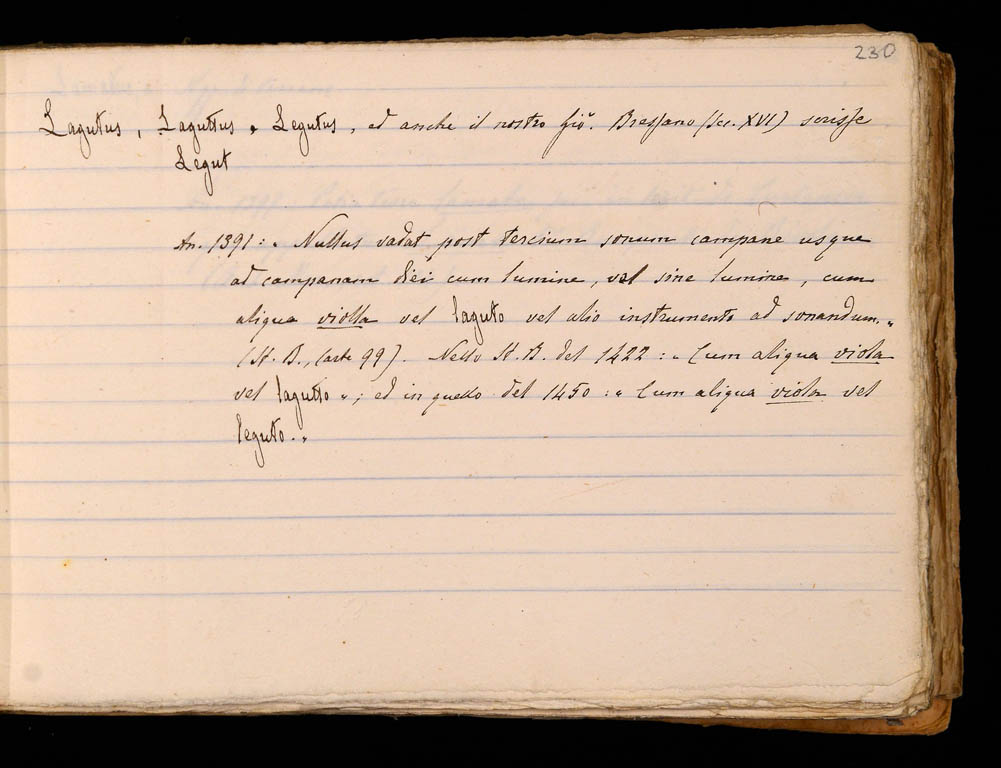 230
Lagutus, Laguttus, Legutus, ed anche il nostro Gio. Bressano (sec. XVI) scrisse
Legut
An. 1391: „ Nullus vadat post tercium sonum campane usque
ad campanam diei cum lumine, vel sine lumine, cum
aliqua violla vel laguto vel alio instrumento ad sonandum. „
(St. B., Carte 99). Nello St. B. del 1422: „ Cum aliqua viola
vel lagutto „; ed in quello del 1450: „ Cum aliqua viola vel
leguto. „